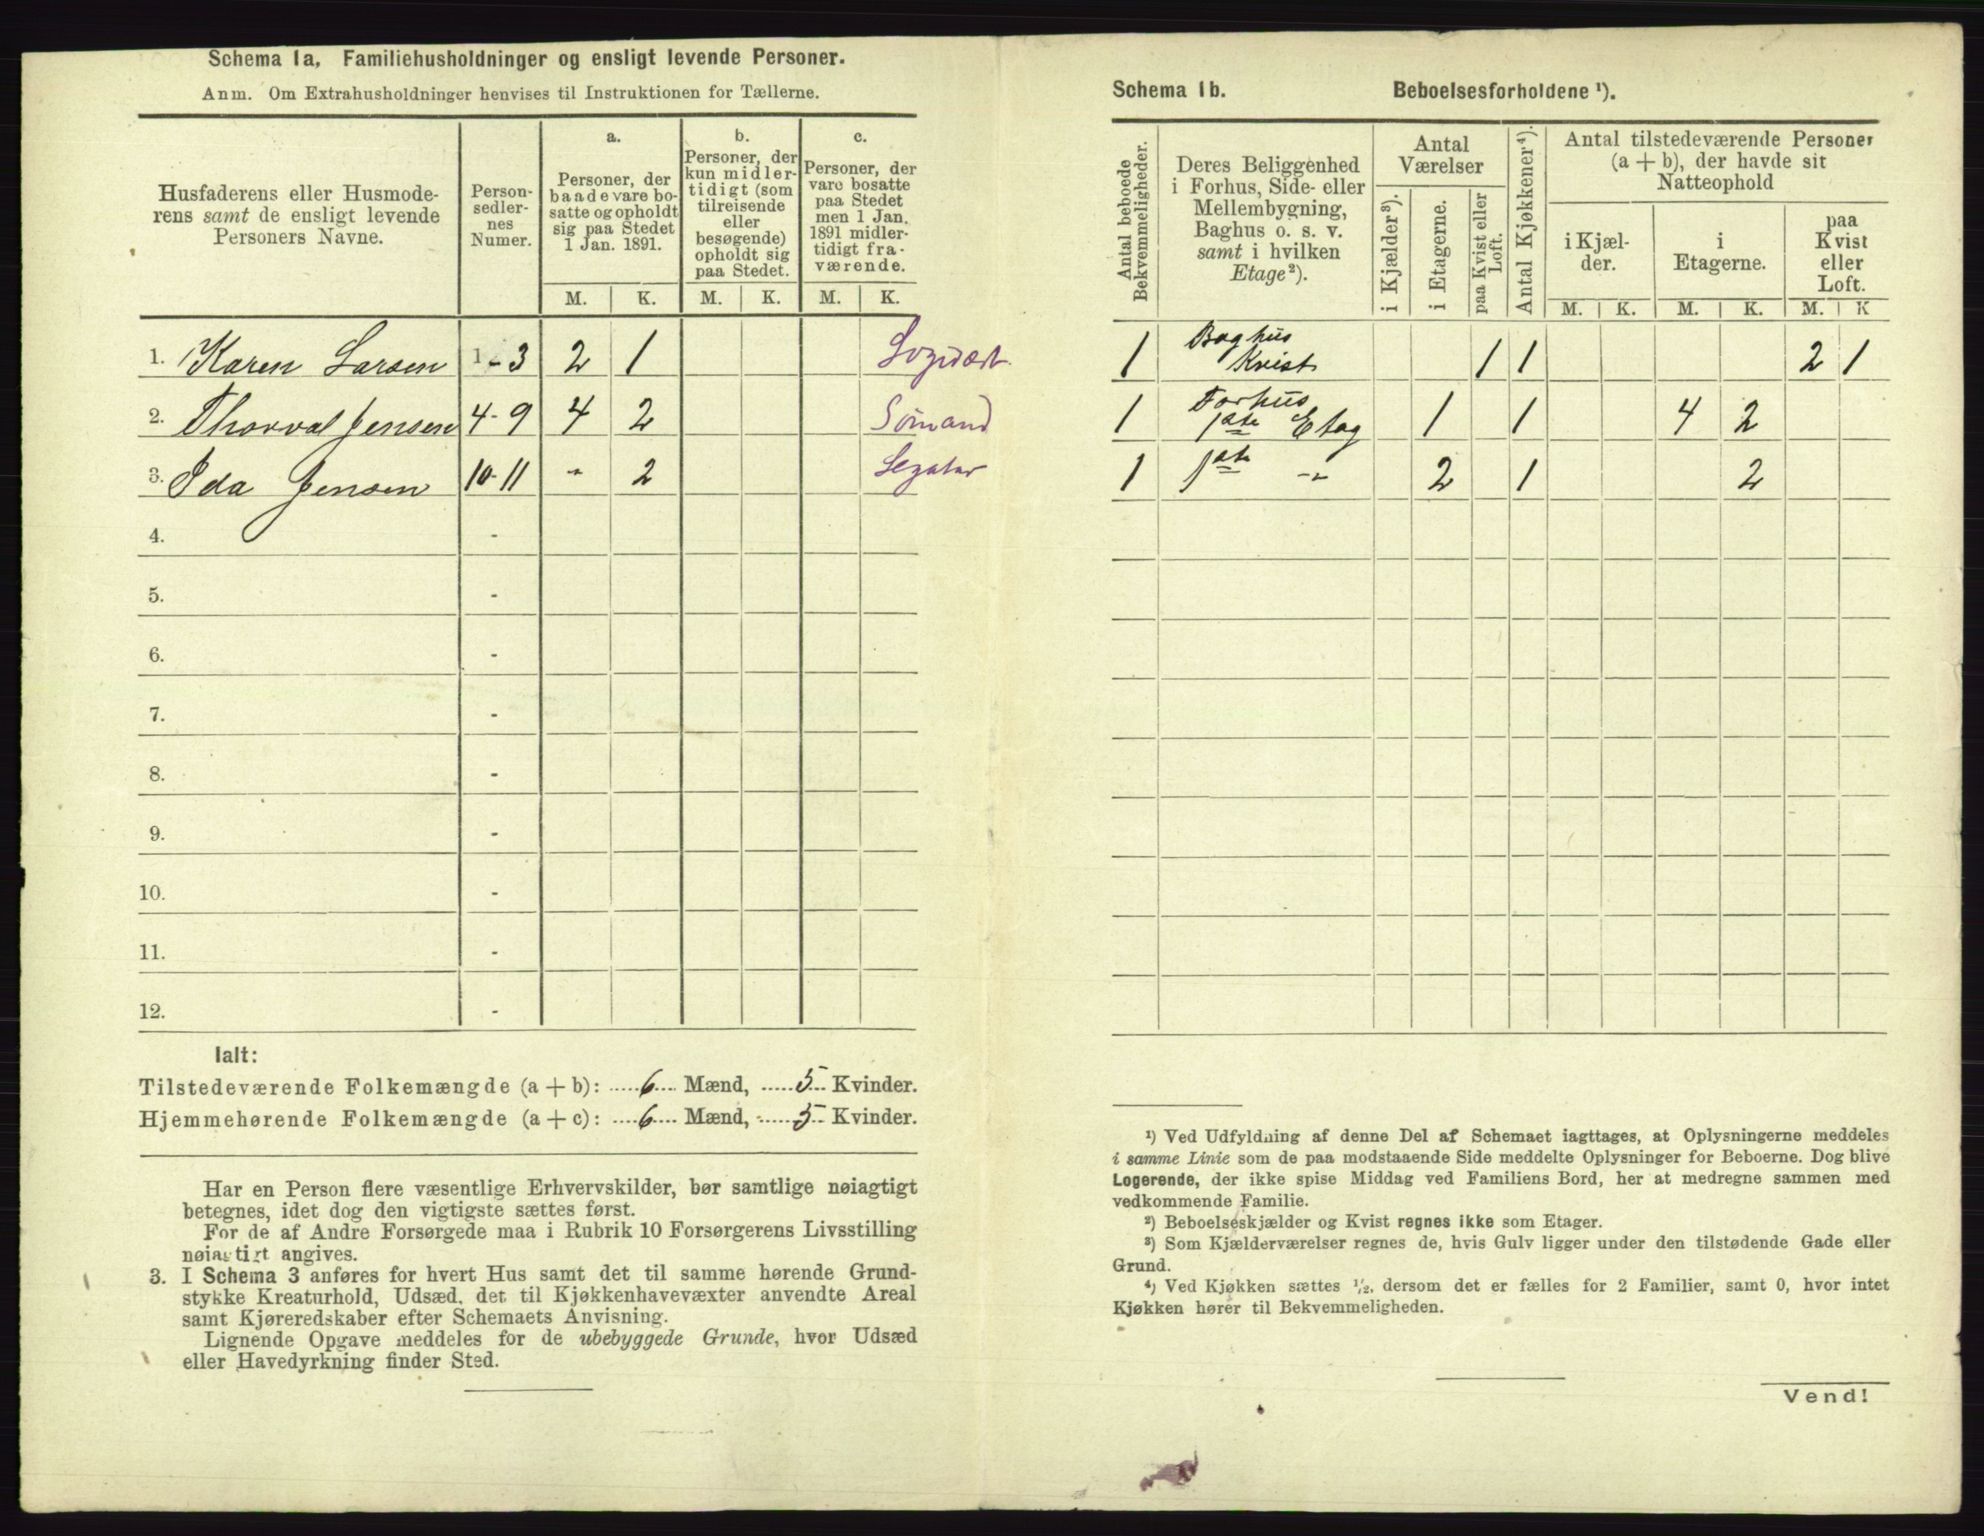 Schema 1a, Familiehusholdninger og ensligt levende Personer.
Anm. Om Extrahusholdninger henvises til Instruktionen for Tællerne.
Husfaderens eller Husmode-
rens samt de ensligt levende
Personers Navne.
Person-
sedler-
nes
Numer.
a.
Personer, der
baade vare bo-
satte og opholdt
sig paa Stedet
1 Jan. 1891.
b.
Personer, der
kun midler-
tidigt (som
tilreisende
eller
besøgende)
opholdt sig
paa Stedet.
c.
Personer, der
vare bosatte
paa Stedet
men 1 Jan.
1891 midler-
tidigt fra-
værende.
M. K. M. K. M. K.
1. Karen Larsen 1 - 3 2 1
2. Thorval Jensen 4 - 9 4 2 Sømand
3. Ida Jensen 10 - 11 - 2
4. -
5. -
6. -
7. -
8. -
9. -
10. -
11. -
12. -
Ialt:
Tilstedeværende Folkemængde (a + b): ..... 6 .... Mænd, ...... 5 ... Kvinder.
Hjemmehørende Folkemængde (a + c): .... 6 .... Mænd, ...... 5 .. Kvinder.
Har en Person flere væsentlige Erhvervskilder, bør samtlige nøiagtigt
betegnes, idet dog den vigtigste sættes først.
For de af Andre Forsørgede maa i Rubrik 10 Forsørgerens Livsstilling
nøiagtigt angives.
3. I Schema 3 anføres for hvert Hus samt det til samme hørende Grund-
stykke Kreaturhold, Udsæd, det til Kjøkkenhavevæxter anvendte Areal
samt Kjøreredskaber efter Schemaets Anvisning.
Lignende Opgave meddeles for de ubebyggede Grunde, hvor Udsæd
eller Havedyrkning finder Sted.
Schema 1b. Beboelsesforholdene ¹).
Antal beboede
Bekvemmeligheder.
Deres Beliggenhed
i Forhus, Side- eller
Mellembygning,
Baghus o. s. v.
samt i hvilken
Etage²).
Antal
Værelser
i Kjælder³).
i Etagerne.
paa Kvist eller
Loft.
Antal Kjøkkener⁴).
Antal tilstedeværende Personer
(a + b), der havde sit
Natteophold
i Kjæl-
der.
i
Etagerne.
paa
Kvist
eller
Loft.
M. K. M. K. M. K
1 Baghus
Kvist 1 1 2 1
1 Forhus
1ste Etag 1 1 4 2
1 1ste -"- 2 1 2
¹) Ved Udfyldning af denne Del af Schemaet iagttages, at Oplysningerne meddeles
i samme Linie som de paa modstaaende Side meddelte Oplysninger for Beboerne. Dog blive
Logerende, der ikke spise Middag ved Familiens Bord, her at medregne sammen med
vedkommende Familie.
²) Beboelseskjælder og Kvist regnes ikke som Etager.
³) Som Kjælderværelser regnes de, hvis Gulv ligger under den tilstødende Gade eller
Grund.
⁴) Ved Kjøkken sættes ½, dersom det er fælles for 2 Familier, samt 0, hvor intet
Kjøkken hører til Bekvemmeligheden.
Vend!